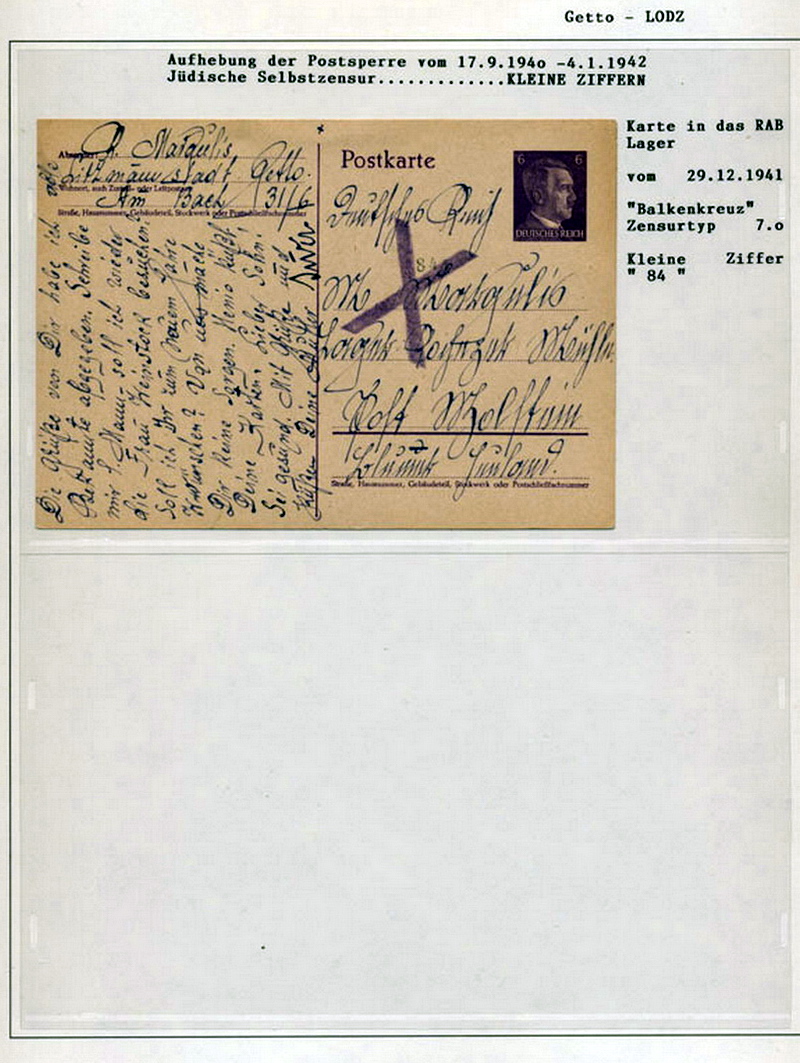 Getto - LODZ
Aufhebung der Postsperre vom 17.9.194o -4.1.1942
Jüdische Selbstzensur.............KLEINE ZIFFERN
Karte in das RAB
Lager
vom 29.12.1941
"Balkenkreuz"
Zensurtyp 7.o
Kleine Ziffer
" 84 "
Margulis
Litzmannstadt Getto.
Wohnort, auch Zustell- oder Leitpostamt
Am Bach 31/6
Straße, Hausnummer, Gebäudeteil, Stockwerk oder Postschließfachnummer
Postkarte
6 6
DEUTSCHES REICH
Deutsches Reich
84
M Margulis
Lager
Post
Straße, Hausnummer, Gebäudeteil, Stockwerk oder Postschließfachnummer
Die Grüße von Dir habe ich
Bekannte abgegeben. Schreibe
mir soll ich wieder
die Frau besuchen?
Soll ich Ihr zum Neuen Jahre
Von uns mache
Dir keine Sorgen. küßt
Deine Karten. Lieber Sohn!
Sei gesund. Mit Grüße und
Küßen Deine Mutter